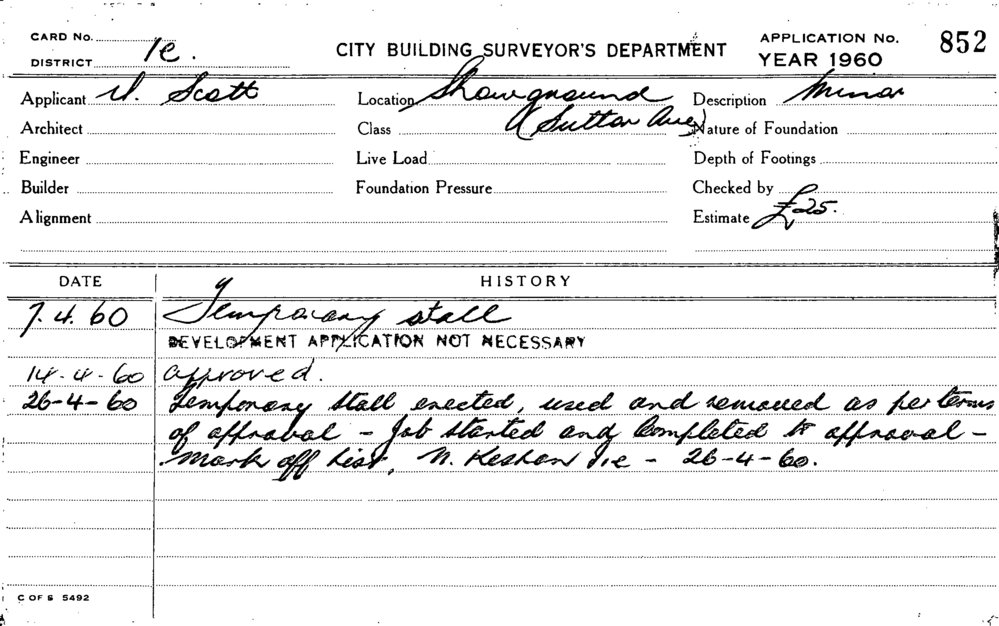 CARD No.
DISTRICT 1e.
CITY BUILDING SURVEYOR'S DEPARTMENT
APPLICATION No. 852
YEAR 1960
Applicant Scott
Location Showground
Description Minor
Architect
Class (Sutton Ave)
Nature of Foundation
Engineer
Live Load
Depth of Footings
Builder
Foundation Pressure
Checked by
Alignment
Estimate £25.
DATE HISTORY
7.4.60 Temporary stall
DEVELOPMENT APPLICATION NOT NECESSARY
14-4-60 approved.
26-4-60 Temporary stall erected, used and removed as per terms
of approval - Job started and completed to approval -
mark off list, 1e - 26-4-60.
C OF S 5492